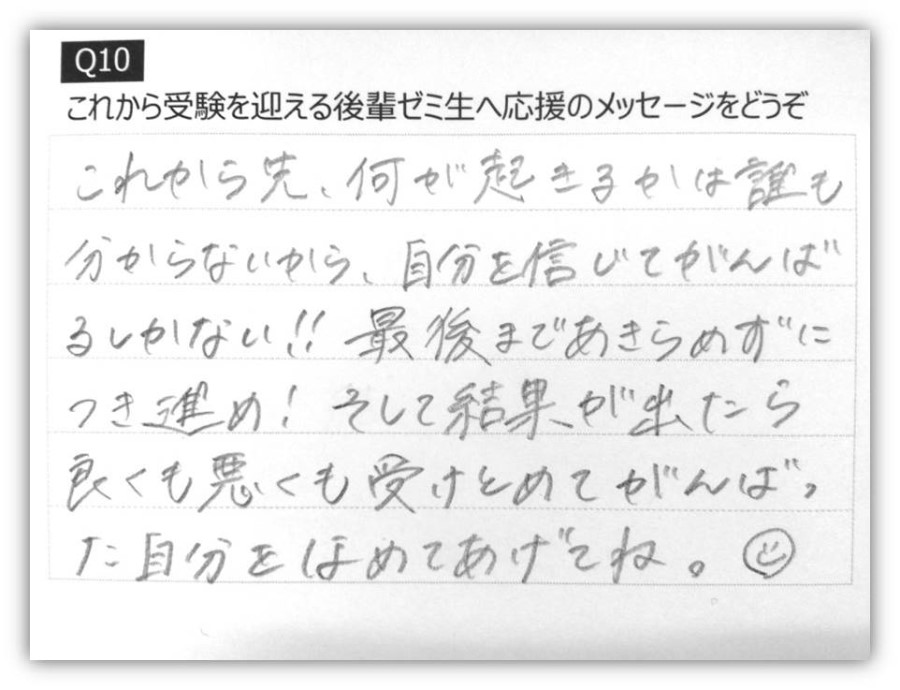 Q10
これから受験を迎える後輩ゼミ生へ応援のメッセージをどうぞ
これから先、何が起きるかは誰も
分からないから、自分を信じてがんば
るしかない!! 最後まであきらめずに
つき進め! そして結果が出たら
良くも悪くも受けとめてがんばっ
た自分をほめてあげてね。